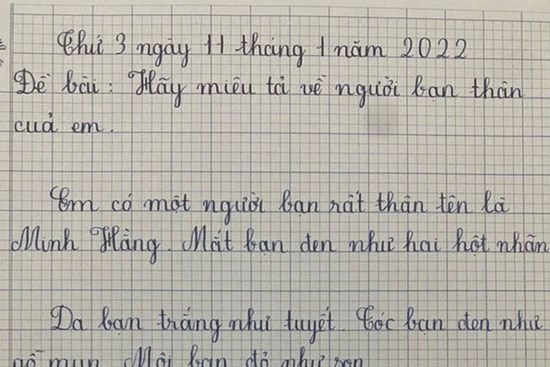 Thứ 3 ngày 11 tháng 1 năm 2022
Đề bài: Hãy miêu tả về người bạn thân
cuả em.
Em có một người bạn rất thân tên là
Minh Hằng. Mắt bạn đen như hai hột nhãn
Da bạn trắng như tuyết. Tóc bạn đen như
gỗ mun. Môi bạn đỏ như son